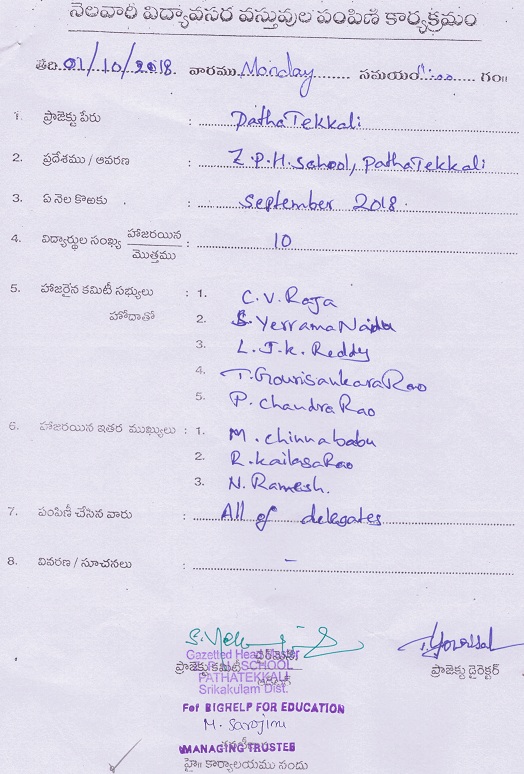 నెలవారీ విద్యావసర వస్తువుల పంపిణీ కార్యక్రమం
తేది 01/10/2018. వారము Monday సమయం గం॥
1. ప్రాజెక్టు పేరు : PathaTekkali
2. ప్రదేశము / ఆవరణ : Z.P.H.School, PathaTekkali
3. ఏ నెల కొఱకు : September 2018.
4. విద్యార్థుల సంఖ్య హాజరయిన / మొత్తము : 10
5. హాజరైన కమిటీ సభ్యులు : 1. C.V.Raja
హోదాతో 2. S.YerramaNaidu
3. L.J.K. Reddy
4. T.GouriSankaraRao
5. P. ChandraRao
6. హాజరయిన ఇతర ముఖ్యులు : 1. M.chinnababu
2. R.KailasaRao
3. N.Ramesh.
7. పంపిణీ చేసిన వారు : All of delegates
8. వివరణ / సూచనలు : –
Gazetted Head Master
ప్రాజెక్టు కమిటీ ప్రాజెక్టు డైరెక్టర్
SCHOOL
PATHATEKKALI
Srikakulam Dist.
For BIGHELP FOR EDUCATION
M. Sarojini
MANAGING TRUSTEE
హై॥ కార్యాలయము నందు